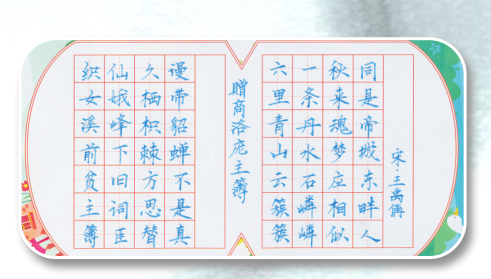 织女溪前贫主簿
仙娥峰下旧词臣
久栖枳棘方思替
谩带貂蝉不是真
贈商洛庞主簿
六里青山云簇簇
一条丹水石嶙嶙
秋来魂梦应相似
同是帝城东畔人
宋·王禹偁